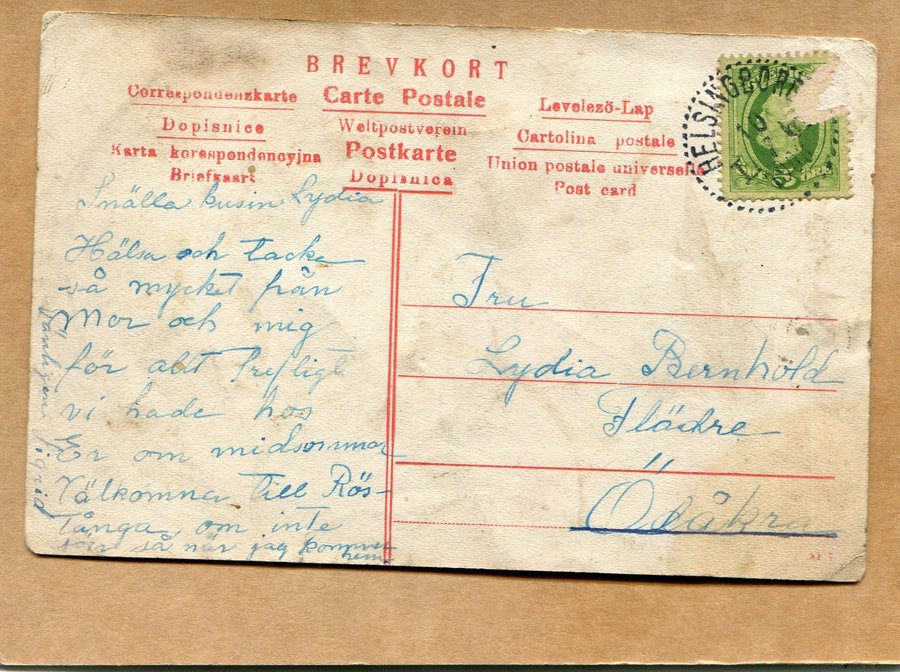 BREVKORT
Correspondenzkarte
Carte Postale
Levelező-Lap
Dopisnice
Weltpostverein
Cartolina postale
Karta korespondencyjna
Postkarte
Union postale universelle
Briefkaart
Dopisnica
Post card
HELSINGBORG
ÖRE
Snälla kusin Lydia
Hälsa och tacka
så mycket från
Mor och mig
för allt trefligt
vi hade hos
Er om midsommar
Välkomna till Rös-
tånga, om inte
förr så när jag kommer
hem
Sigrid
Fru
Lydia Bernhold
Fläckre
Ödåkra